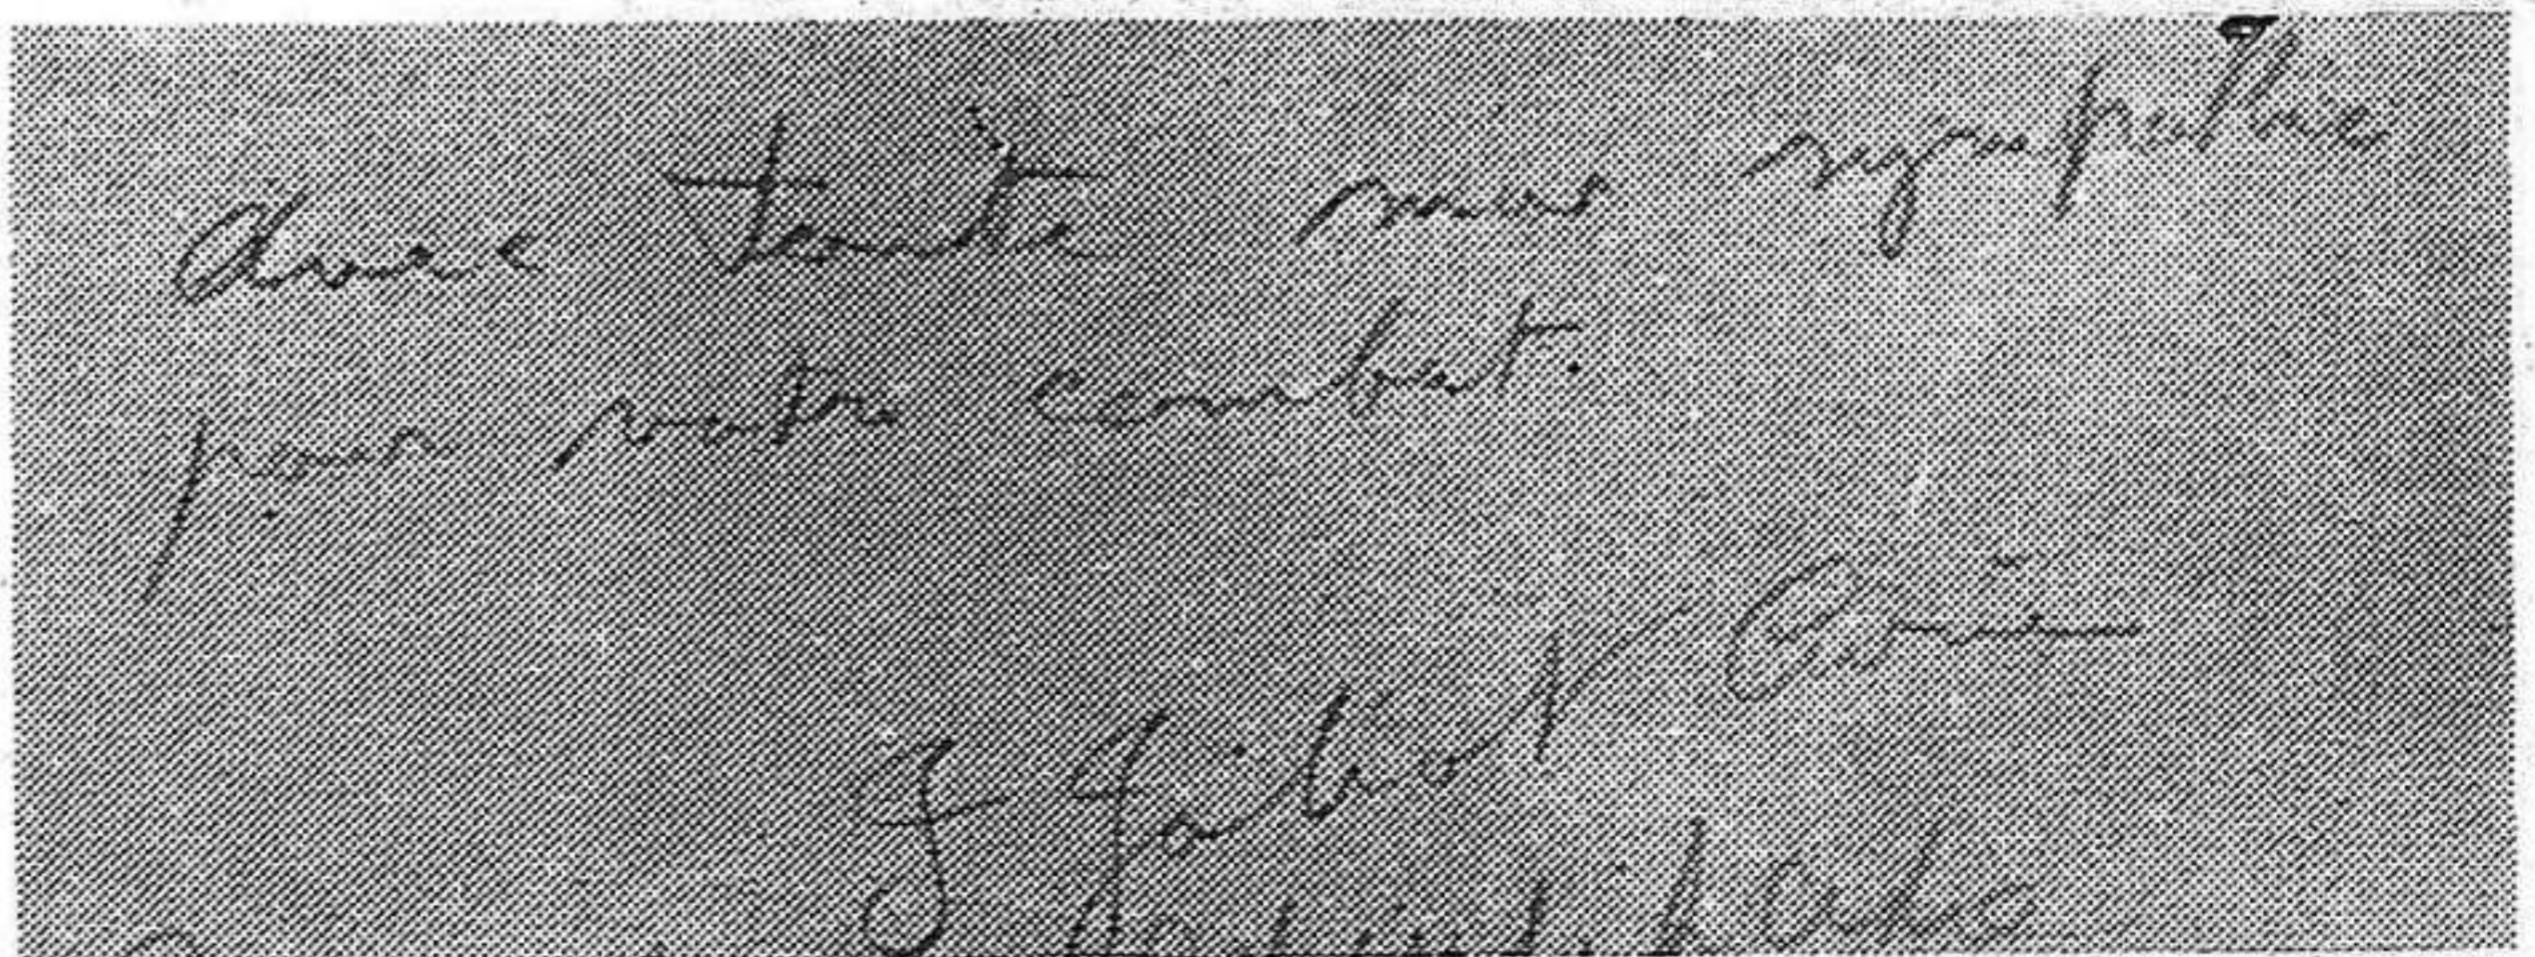 avec toute ma sympathie
pour votre combat.
F Joliot Curie